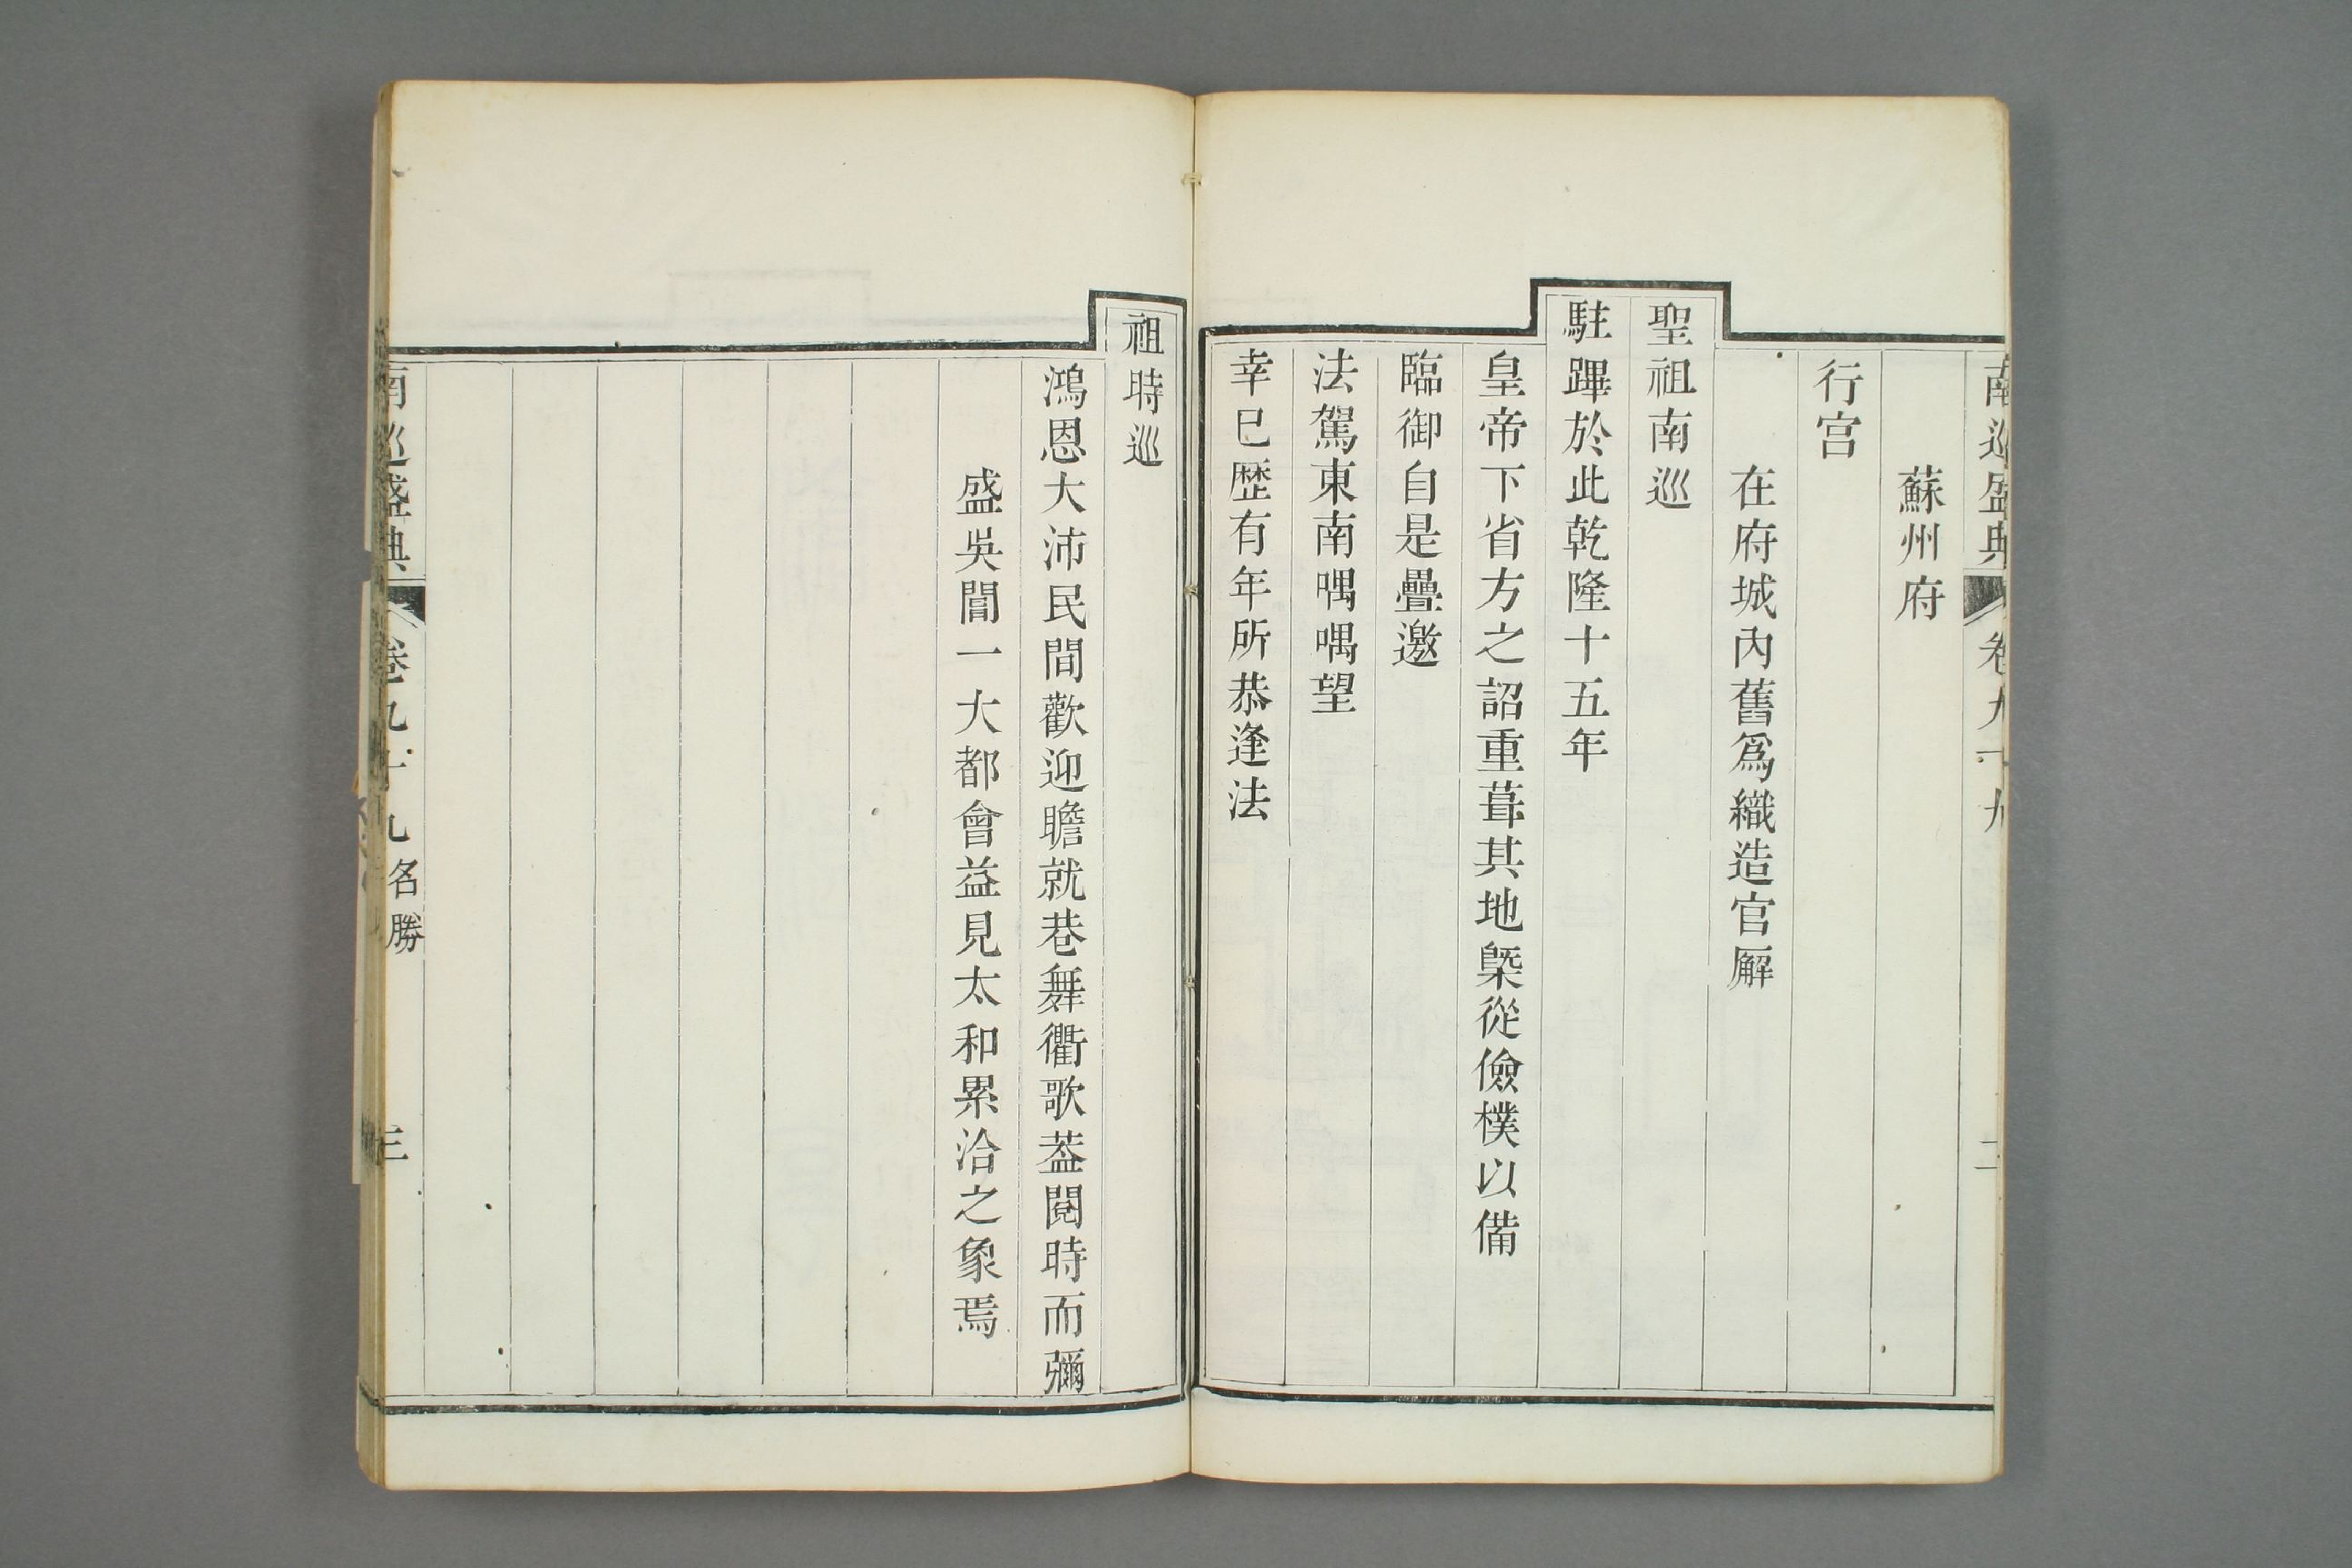 南巡盛典
卷九十九
二
蘇州府
行宫
在府城內舊爲織造官廨
聖祖南巡
駐蹕於此乾隆十五年
皇帝下省方之詔重葺其地槩從儉樸以備
臨御自是疊邀
法駕東南喁喁望
幸巳歷有年所恭逢法
祖時巡
鴻恩大沛民間歡迎瞻就巷舞衢歌葢閱時而彌
盛吳閶一大都會益見太和累洽之象焉
南巡盛典
卷九十九
名勝
三